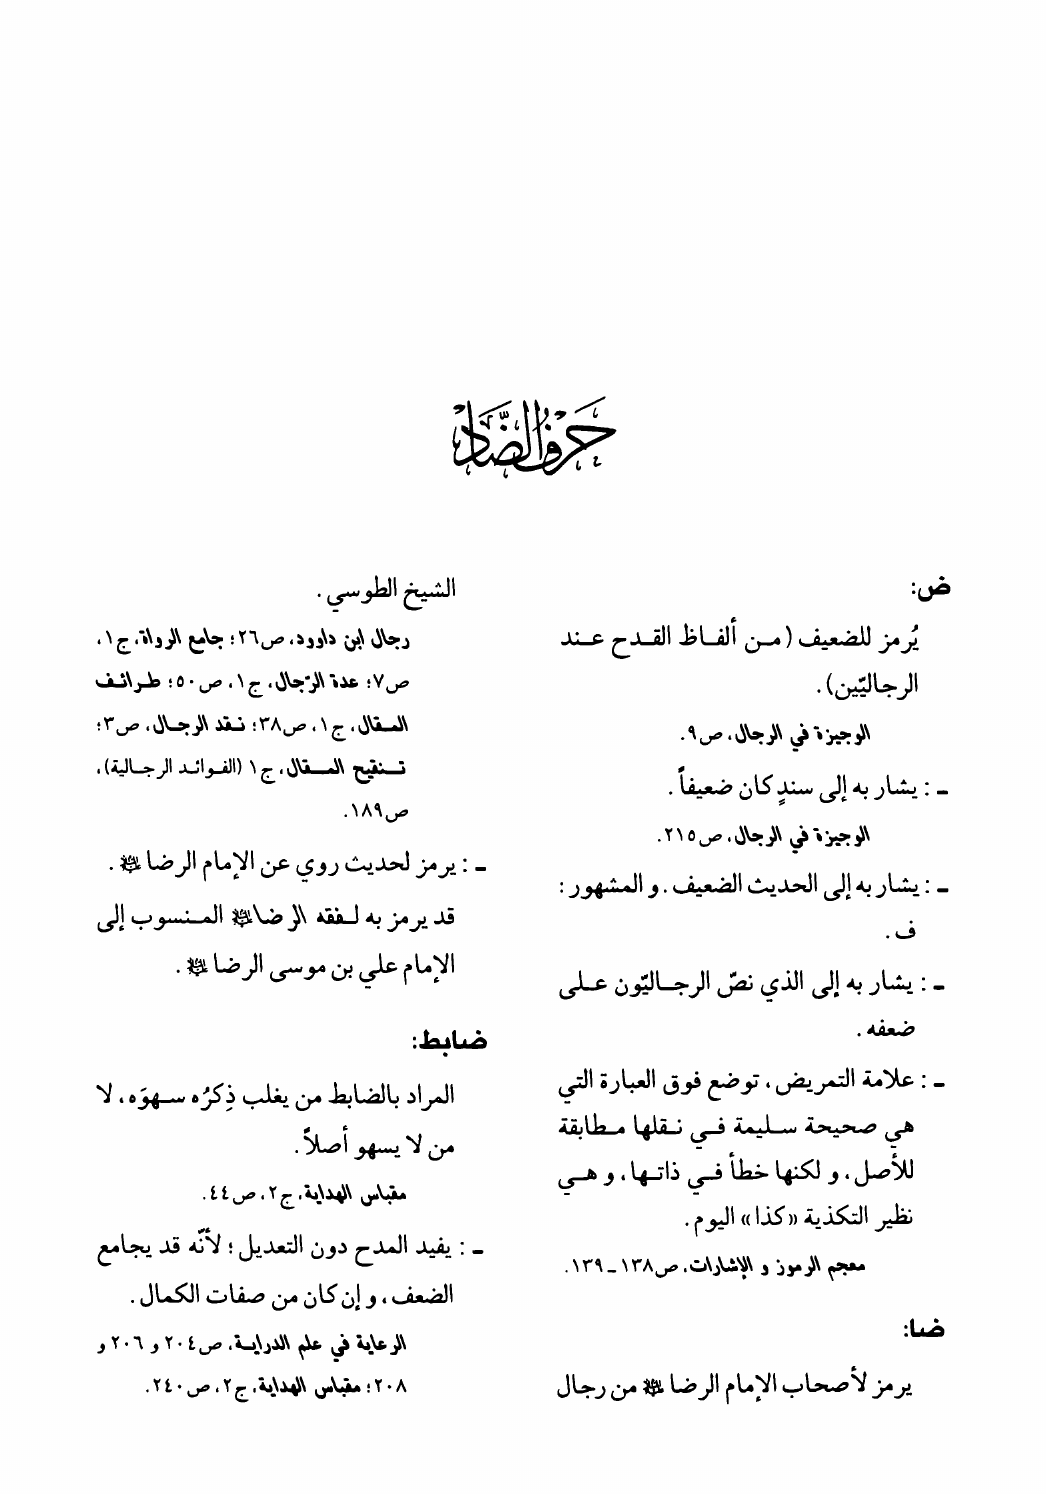 حَرفُ الضَّاد
ض:
يُرمز للضعيف (مـن ألفـاظ القـدح عـند
الرجاليّين).
الوجيزة في الرجال، ص٩.
ـ : يشار به إلى سندٍ كان ضعيفاً .
الوجيزة في الرجال، ص٢١٥.
ـ : يشار به إلى الحديث الضعيف . و المشهور :
ف .
ـ : يشار به إلى الذي نصّ الرجـاليّون عـلى
ضعفه .
ـ : علامة التمريض، توضع فوق العبارة التي
هي صحيحة سـليمة فـي نـقلها مـطابقة
للأصل، و لكنها خطأ فـي ذاتـها، و هـي
نظير التكذية «كذا» اليوم.
معجم الرموز و الإشارات، ص١٣٨ ـ ١٣٩.
ضا:
يرمز لأصحاب الإمام الرضا ﷺ من رجال
الشيخ الطوسي .
رجال ابن داوود، ص٢٦؛ جامع الرواة، ج١،
ص٧؛ عدة الرّجال، ج١، ص٥٠؛ طـرائـف
المـقال، ج١، ص٣٨؛ نـقد الرجـال، ص٣؛
تـنقيح المـقال، ج١ (الفـوائـد الرجـالية)،
ص١٨٩.
ـ : يرمز لحديث روي عن الإمام الرضا ﷺ .
قد يرمز به لـفقه الرضا ﷺ المـنسوب إلى
الإمام علي بن موسى الرضا ﷺ .
ضابط:
المراد بالضابط من يغلب ذِكرُه سـهوَه، لا
من لا يسهو أصلاً.
مقباس الهداية، ج٢، ص٤٤.
ـ : يفيد المدح دون التعديل؛ لأنّه قد يجامع
الضعف، و إن كان من صفات الكمال.
الرعاية في علم الدرايـة، ص٢٠٤ و ٢٠٦ و
٢٠٨؛ مقباس الهداية، ج٢، ص٢٤٠.